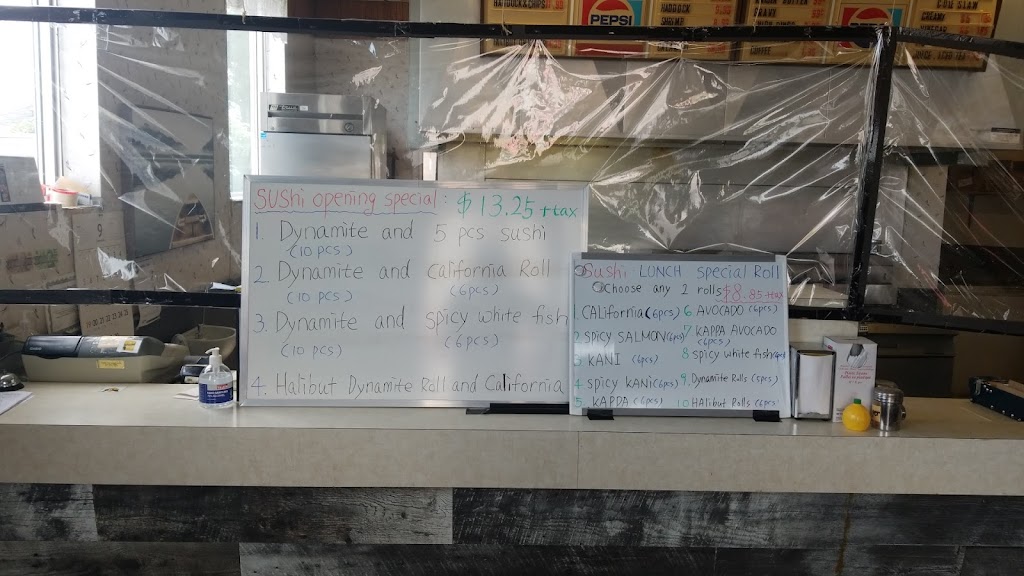 HADDOCK & CHIPS
PEPSI
HADDOCK
SHRIMP
COFFEE
PEPSI
COLE SLAW
CREAMY
SUShi opening special : $ 13.25 + tax
1. Dynamite and 5 pcs sushi
(10 pcs)
2. Dynamite and california Roll
(10 pcs) (6pcs)
3. Dynamite and spicy white fish
(10 pcs) (6pcs)
4. Halibut Dynamite Roll and California
Sushi LUNCH special Roll
Choose any 2 rolls $8.85+tax
1. CALifornia (6pcs) 6 AVOCADO (6pcs)
2 SPICY SALMON(6pcs) 7 KAPPA AVOCADO
(6pcs)
3 KANI (6pcs) 8 spicy white fish(6pcs)
4 SPICY KANI(6pcs) 9. Dynamite Rolls (5pcs)
5 KAPPA (6pcs) 10 HAlibut Rolls (6pcs)